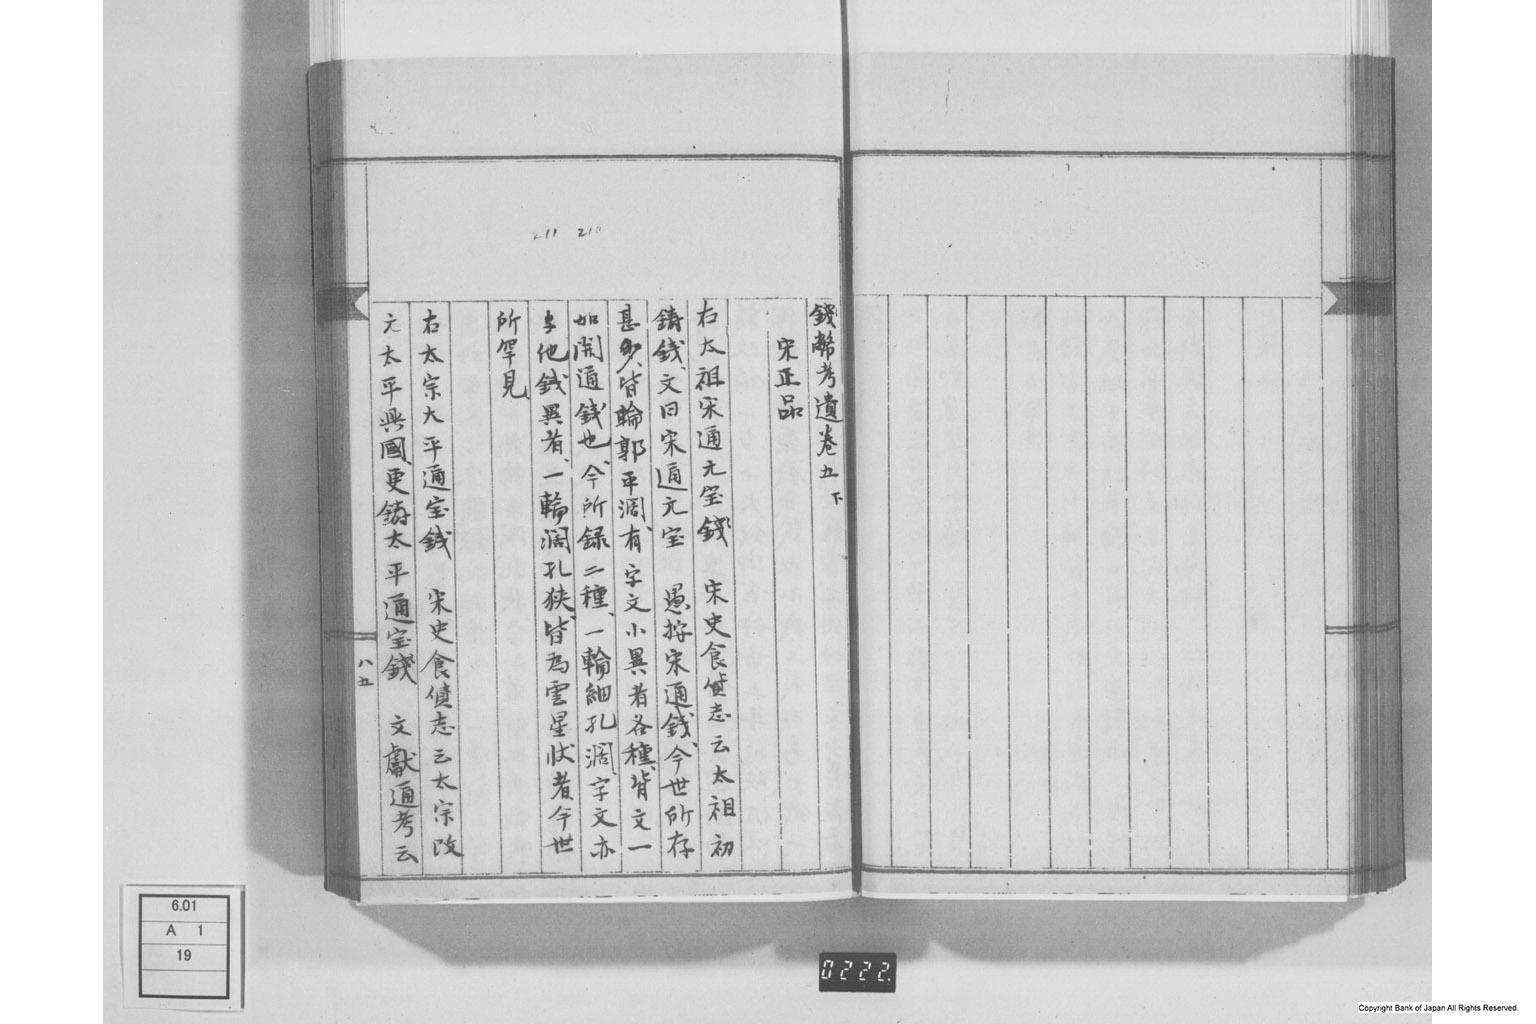 錢幣考遺卷五下
宋正品
右太祖宋通元宝錢　宋史食貨志云太祖初
鋳錢、文曰宋通元宝　愚按宋通錢、今世所存
甚多、皆輪郭平濶、有字文小異者各種、背文一
如開通錢也、今所録二種、一輪細孔濶、字文亦
与他錢異者、一輪濶孔狭、皆為雲星状者今世
所罕見
右太宗大平通宝錢　宋史食貨志云太宗改
元太平興國、更鋳太平通宝錢　文獻通考云
八五
211 210
6.01
A 1
19
0222
Copyright Bank of Japan All Rights Reserved.